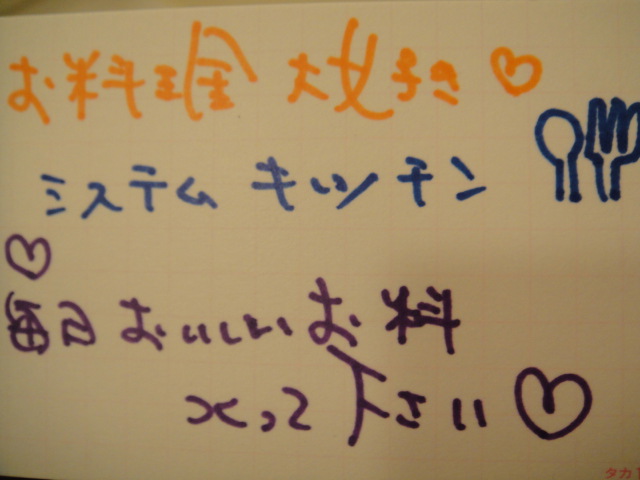 お料理 大好き ♡
システム キッチン
♡
毎日 おいしい お料
って 下さい ♡
タカ